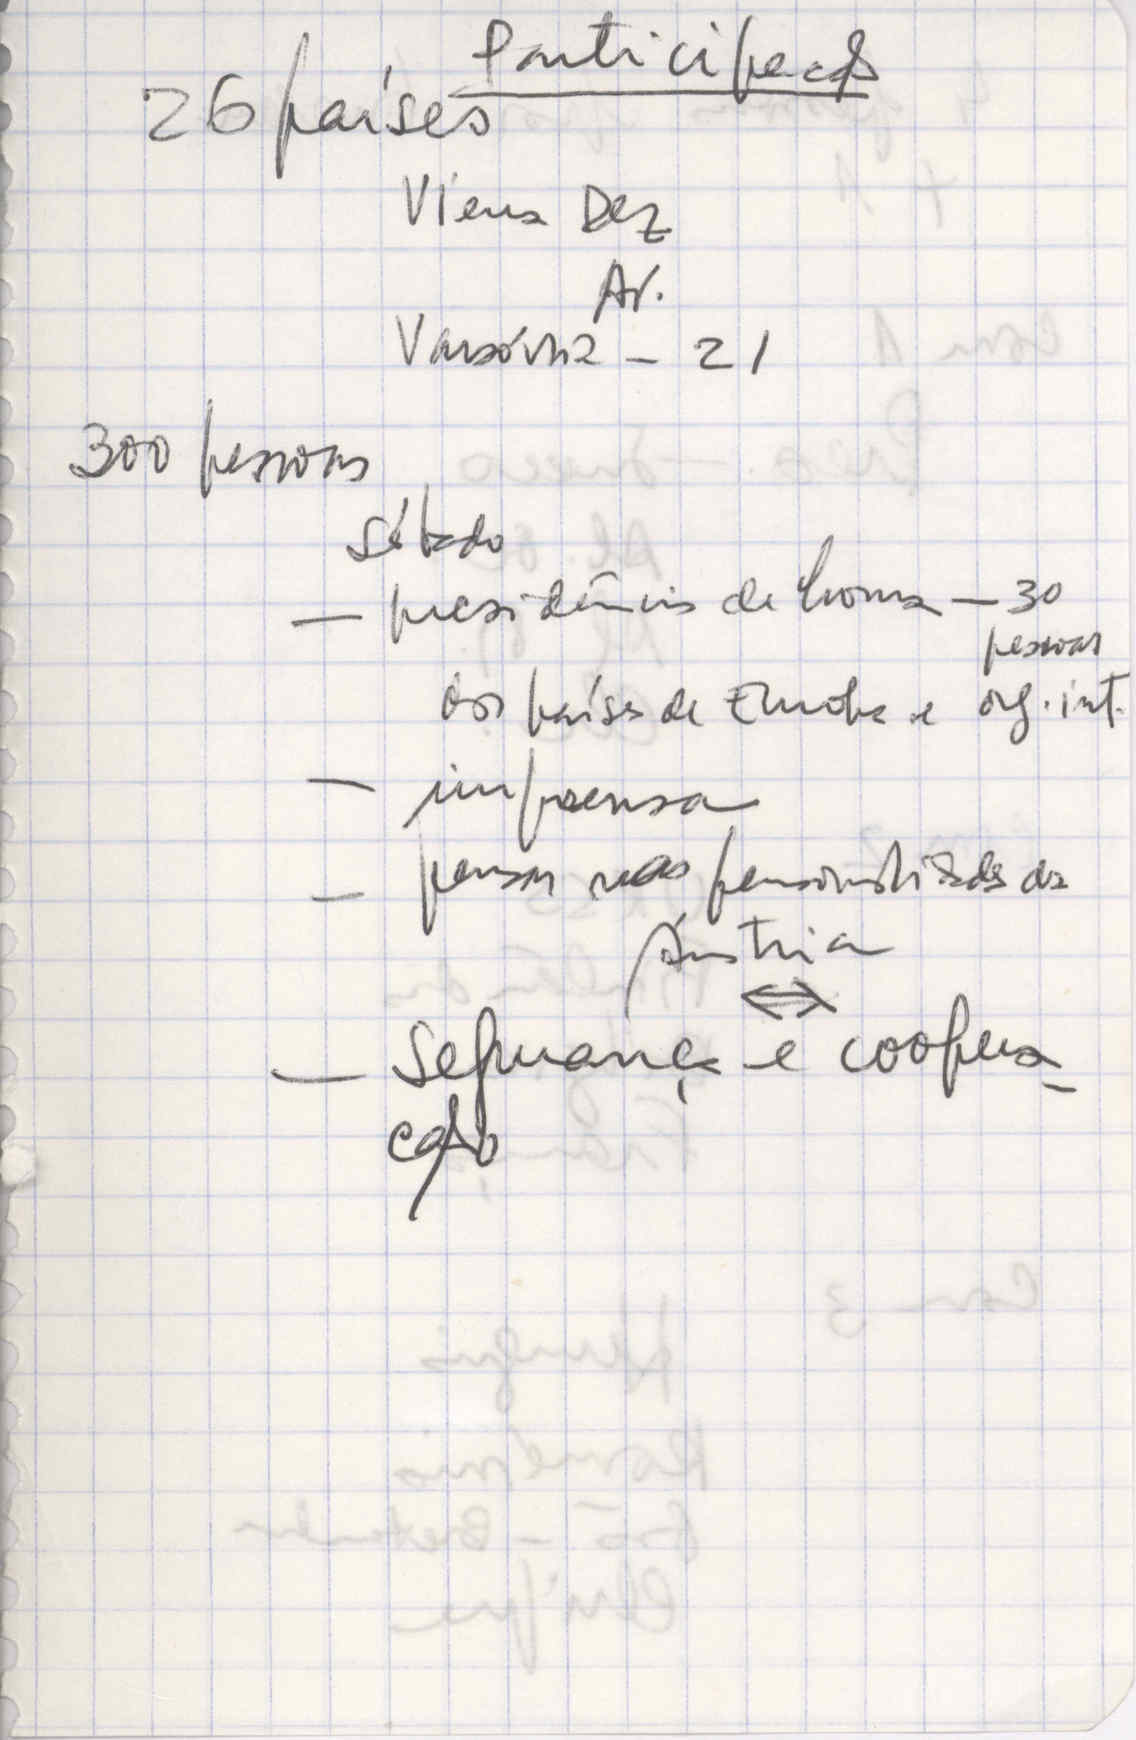 Participação
26 países
Viena Dez
Av.
Varsóvia - 21
300 pessoas
Sábado
— presidência de honra — 30
pessoas
dos países da Europa e org. int.
— imprensa
— pensar nas personalidades da
Áustria
⟺
— Segurança e coopera_
ção